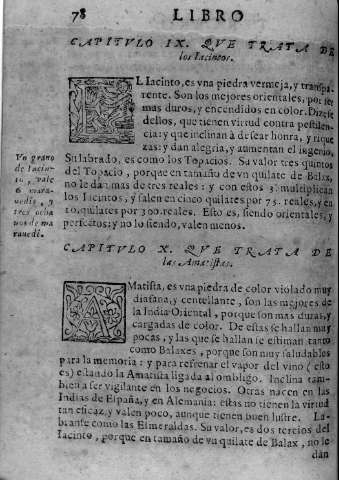 78
LIBRO
CAPITVLO IX. QVE TRATA DE
los Iacintos.
EL Iacinto, es vna piedra vermeja, y transpa-
rente. Son los mejores orientales, por ser
mas duros, y encendidos en color. Dizese
dellos, que tienen virtud contra pestilen-
cia: y que inclinan à desear honra, y rique
zas: y dan alegria, y aumentan el ingenio,
Su labrado, es como los Topacios. Su valor tres quintos
del Topacio, porque en tamaño de vn quilate de Balax,
no le dan mas de tres reales: y con estos 3. multiplican
los Iacintos, y salen en cinco quilates por 75. reales, y en
10. quilates por 300. reales. Esto es, siendo orientales, y
perfectos: y no lo siendo, valen menos.
Vn grano
de Iacin-
to, vale
6 mara-
uedis, y
tres ocha
uos de ma
rauedi.
CAPITVLO X. QVE TRATA DE
las Amatistas.
AMatista, es vna piedra de color violado muy
diafana, y centellante, son las mejores de
la India Oriental, porque son mas duras, y
cargadas de color. De estas se hallan muy
pocas, y las que se hallan se estiman tanto
como Balaxes, porque son muy saludables
para la memoria: y para refrenar el vapor del vino (esto
es) estando la Amatista ligada al ombligo. Inclina tam-
bien a ser vigilante en los negocios. Otras nacen en las
Indias de España, y en Alemania: estas no tienen la virtud
tan eficaz, y valen poco, aunque tienen buen lustre. La-
branse como las Esmeraldas. Su valor, es dos tercios del
Iacinto, porque en tamaño de vn quilate de Balax, no le
dan